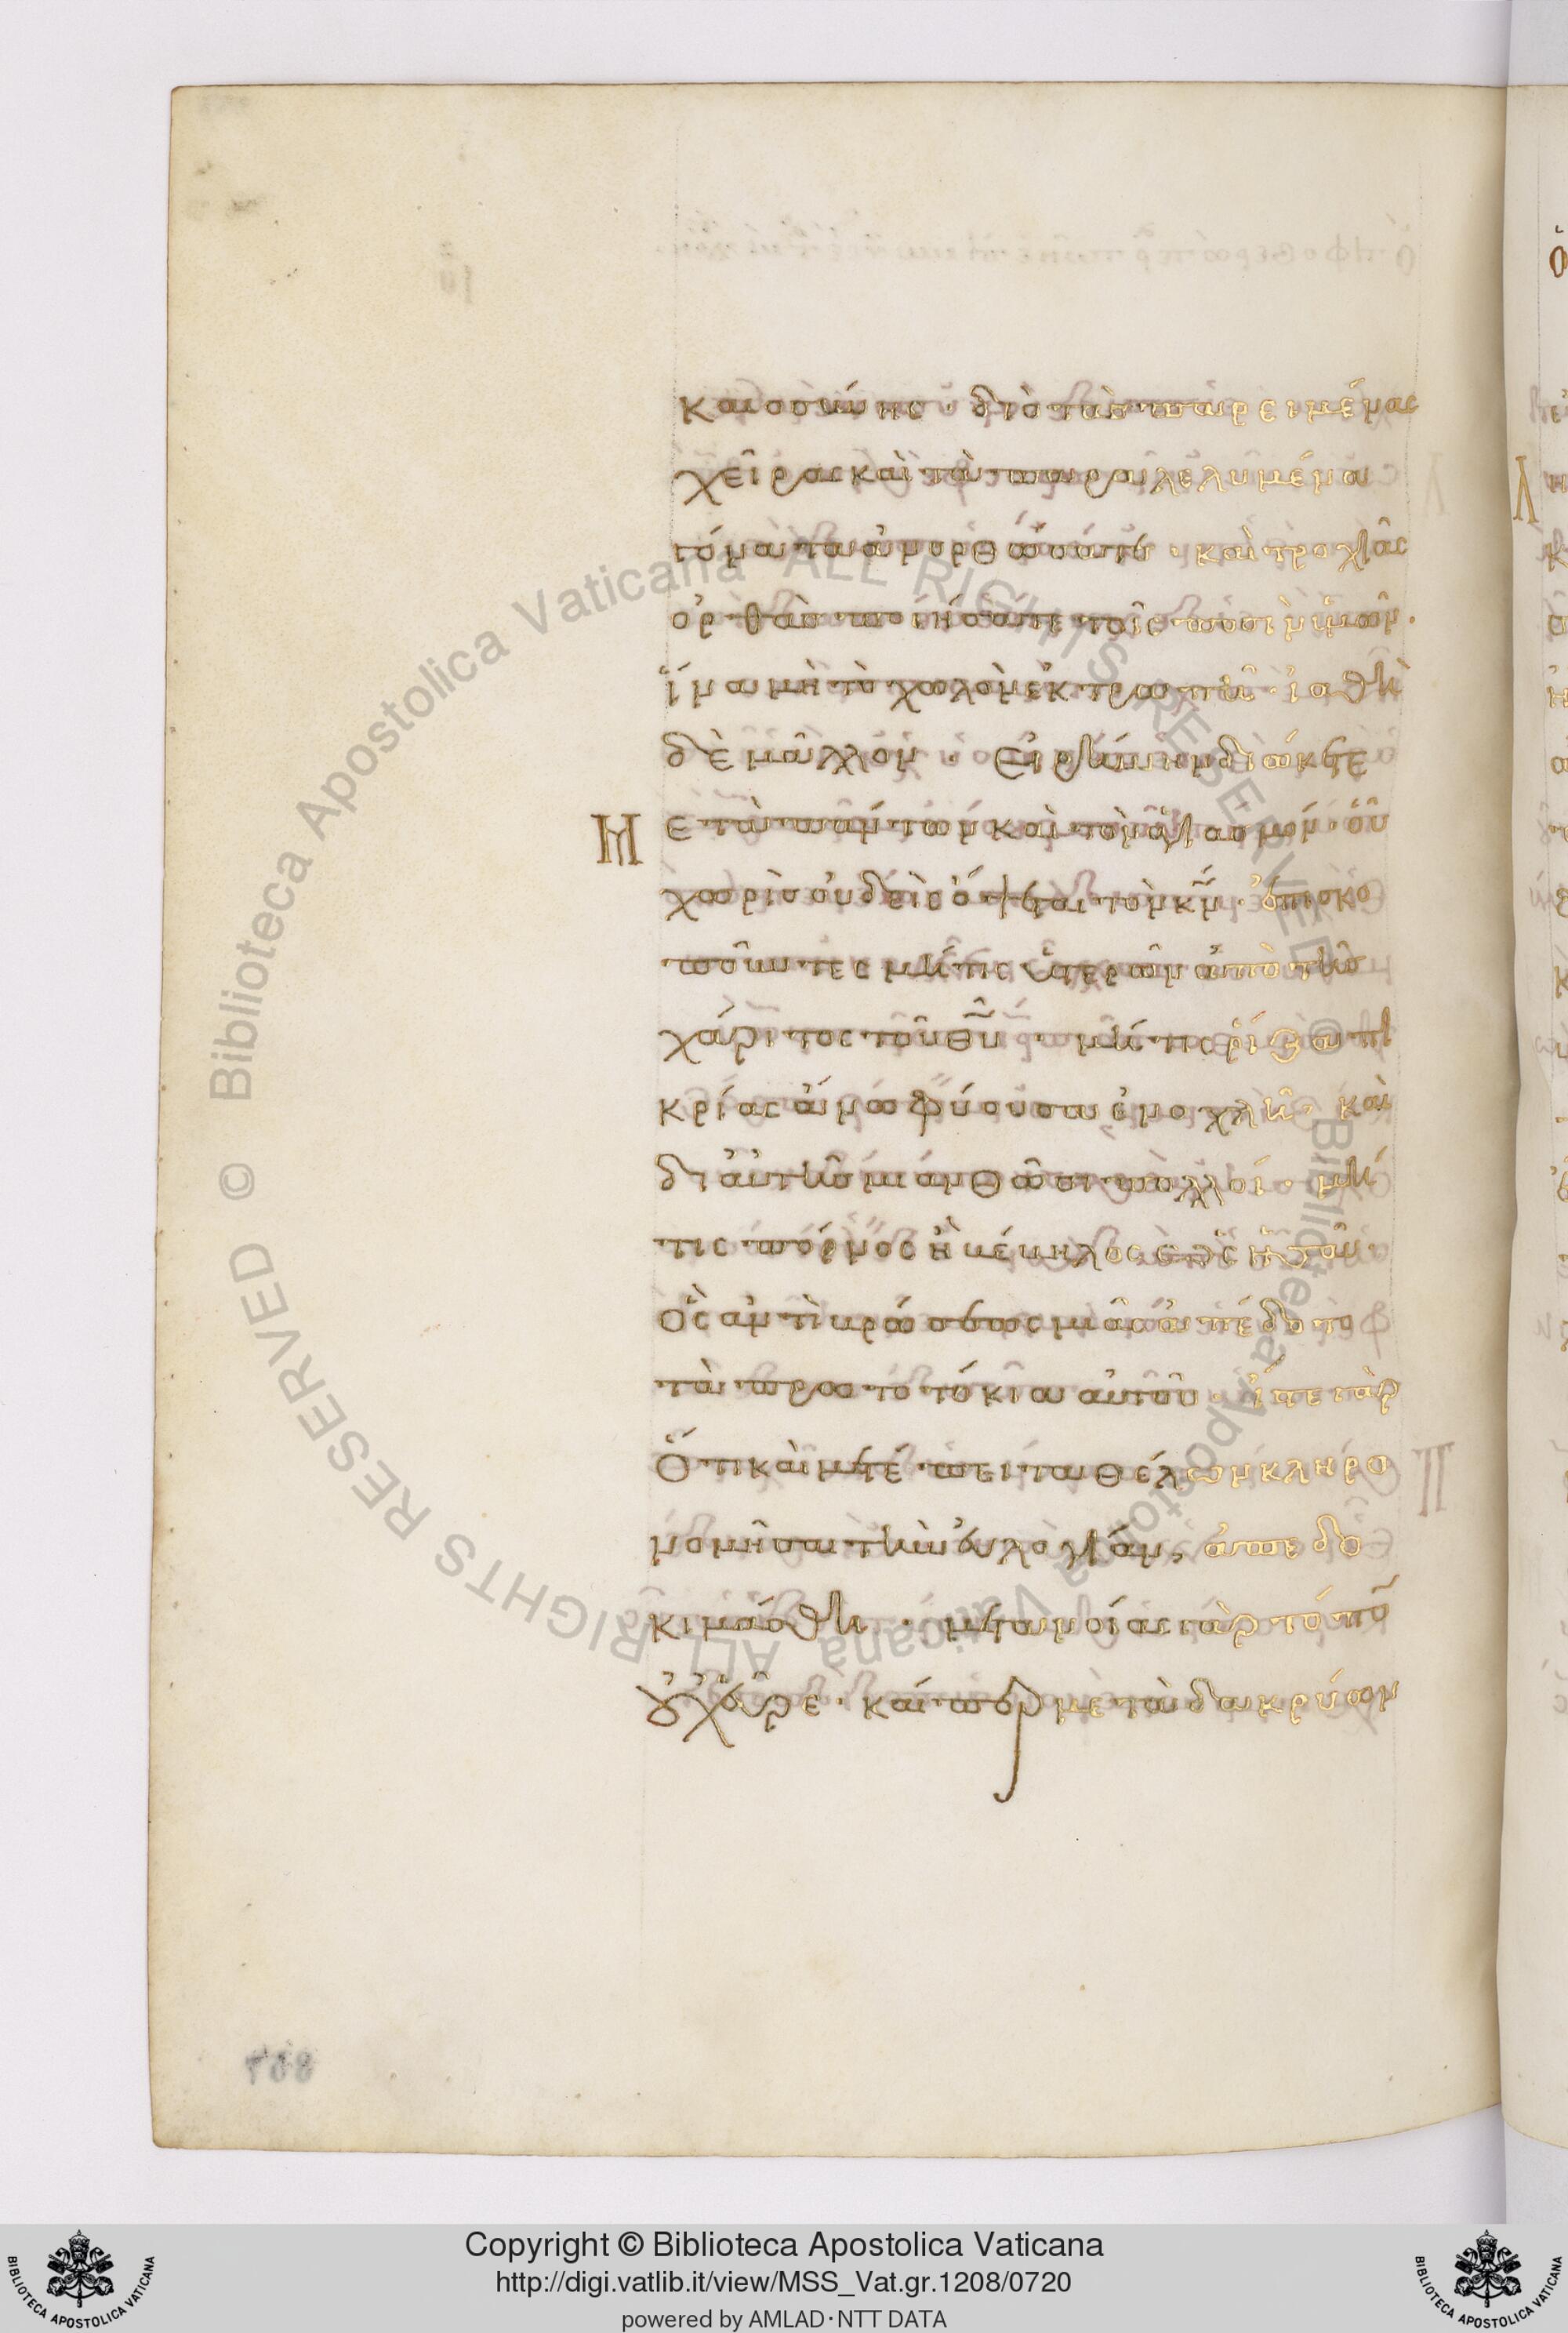 καιοσύνης· διὸ τὰς παρειμένας
χεῖρας καὶ τὰ παραλελυμένα
γόνατα ἀνορθώσατε· καὶ τροχιὰς
ὀρθὰς ποιήσατε τοῖς ποσὶν ὑμῶν·
ἵνα μὴ τὸ χωλὸν ἐκτραπῆ· ἰαθῆ
δὲ μᾶλλον· Εἰρήνην διώκετε
Μετὰ πάντων καὶ τὸν ἁγιασμόν· οὗ
χωρὶς οὐδεὶς ὄψεται τὸν κν· ἐπισκο
ποῦντες μή τις ὑστερῶν ἀπὸ τῆς
χάριτος τοῦ θυ· μή τις ῥίζα πι
κρίας ἄνω φύουσα ἐνοχλῆ· καὶ
δι αὐτῆς μιανθῶσι πολλοί· μή
τις πόρνος ἢ βέβηλος ὡς ἡσαῦ·
Ὃς ἀντὶ βρώσεως μιᾶς ἀπέδοτο
τὰ πρωτοτόκια αὐτοῦ· ἴστε γὰρ
Ὅτι καὶ μετέπειτα θέλων κληρο
νομῆσαι τὴν εὐλογίαν, ἀπεδο
κιμάσθη· μετανοίας γὰρ τόπον
οὐχ εὗρε· καί περ μετὰ δακρύων
Copyright © Biblioteca Apostolica Vaticana
http://digi.vatlib.it/view/MSS_Vat.gr.1208/0720
powered by AMLAD·NTT DATA
BIBLIOTECA APOSTOLICA VATICANA
BIBLIOTECA APOSTOLICA VATICANA
© Biblioteca Apostolica Vaticana ALL RIGHTS RESERVED
© Biblioteca Apostolica Vaticana ALL RIGHTS RESERVED